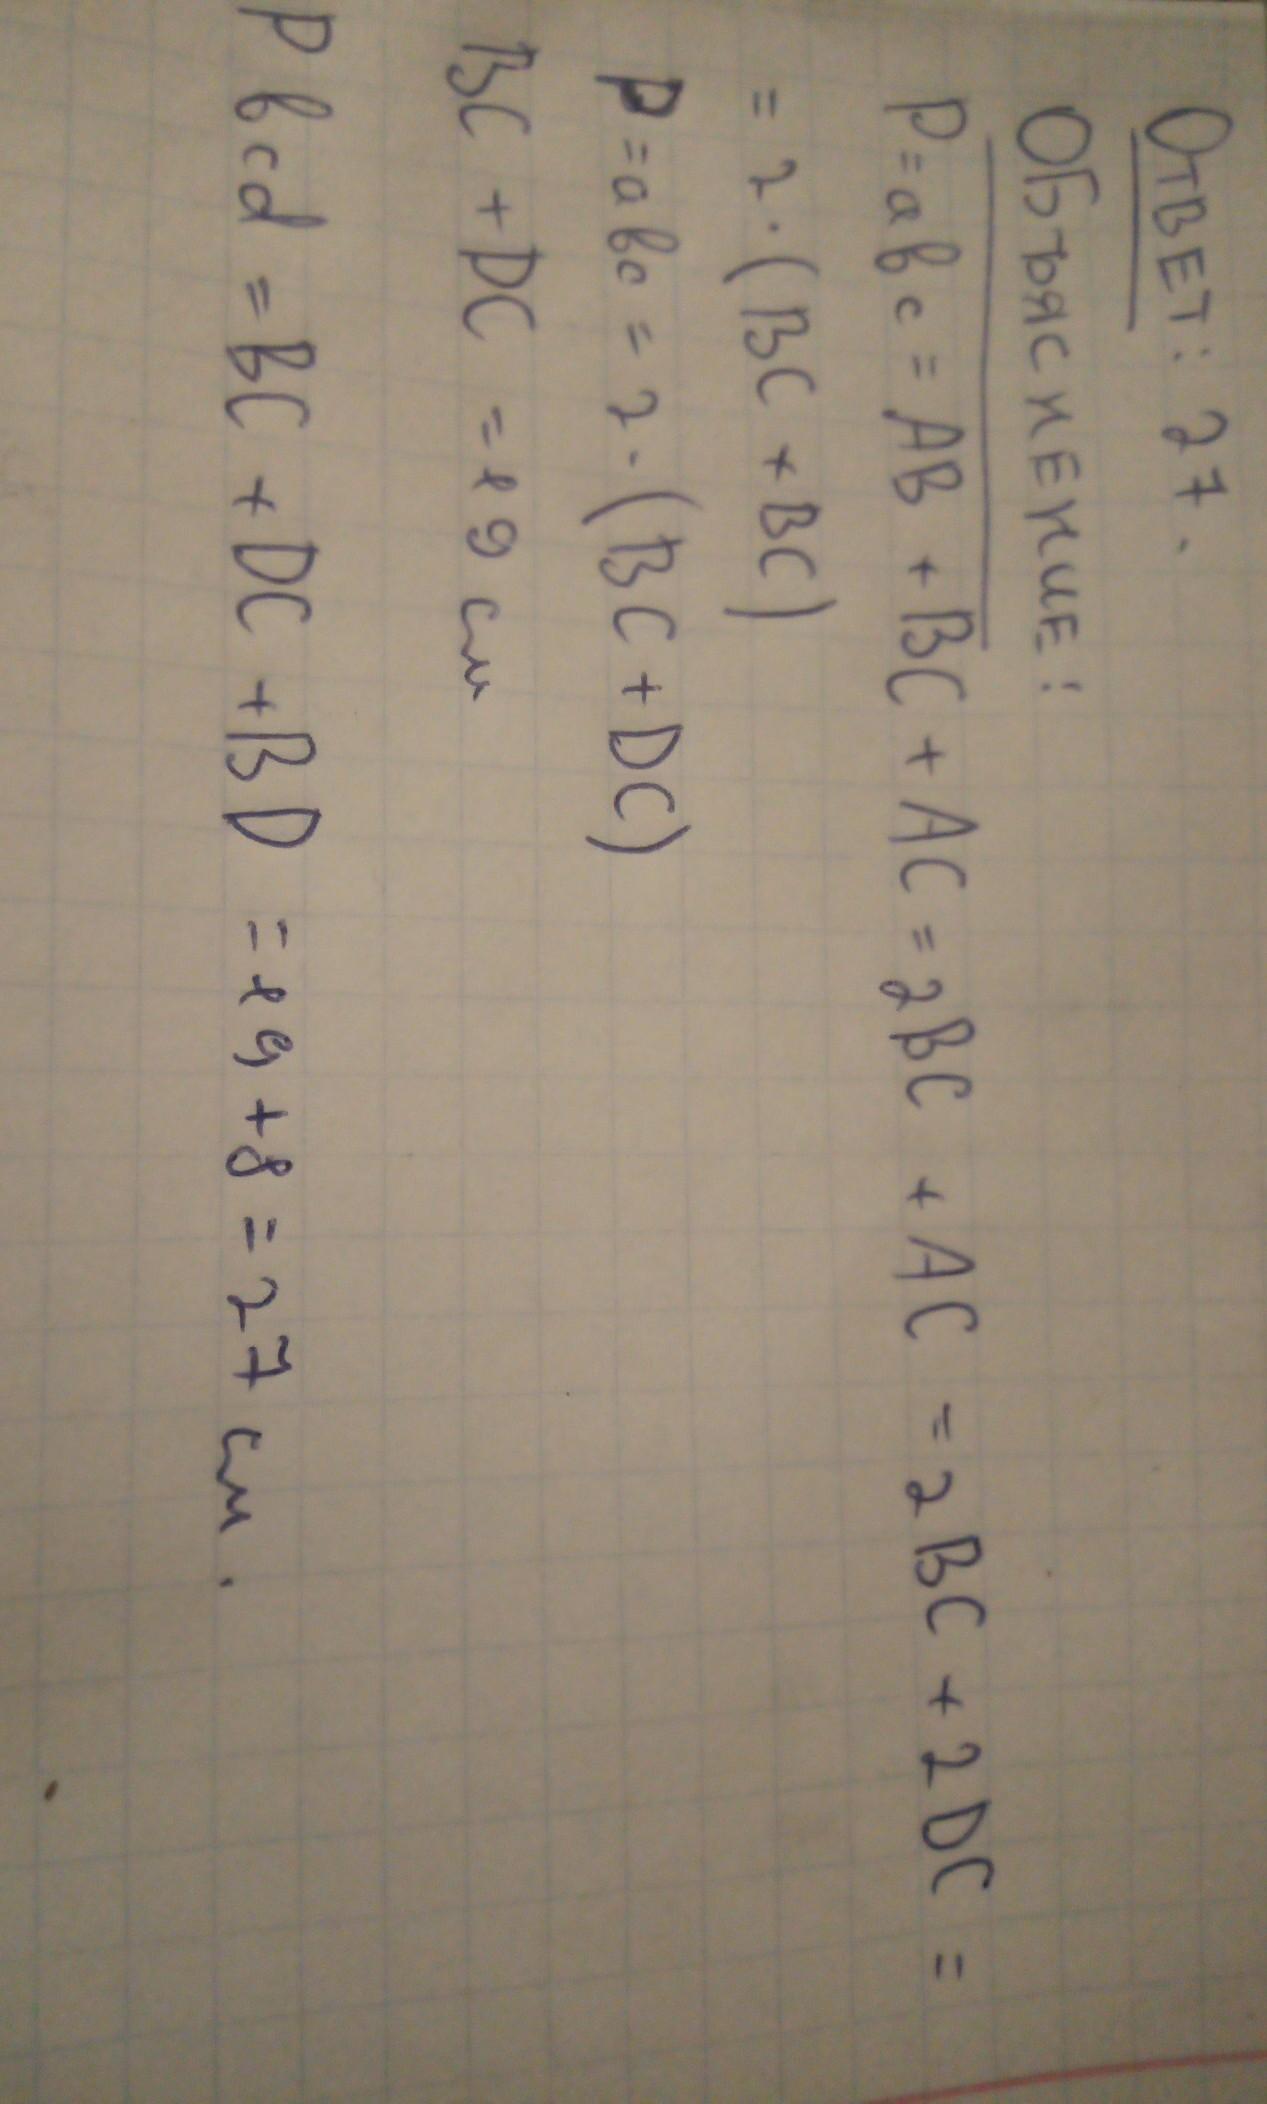 Ответ: 27.
Объяснение:
P=abc = AB + BC + AC = 2BC + AC = 2BC + 2DC =
= 2·(BC + BC)
P=abc = 2·(BC + DC)
BC + DC = 19 см
P bcd = BC + DC + BD = 19 + 8 = 27 см.